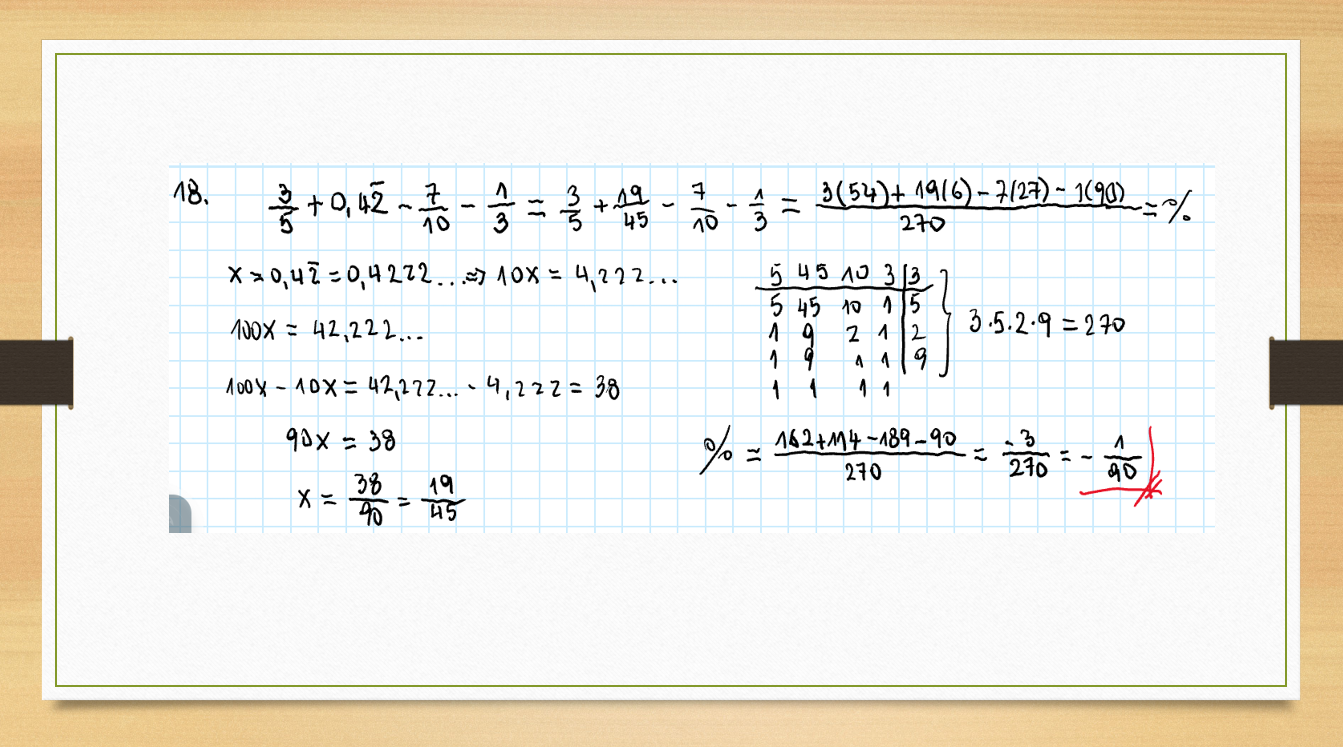 18. 3/5 + 0,42̅ - 7/10 - 1/3 = 3/5 + 19/45 - 7/10 - 1/3 = (3(54) + 19(6) - 7(27) - 1(90))/270 = %
x = 0,42̅ = 0,4222... => 10x = 4,222...
100x = 42,222...
100x - 10x = 42,222... - 4,222 = 38
90x = 38
x = 38/90 = 19/45
5 45 10 3 | 3
5 45 10 1 | 5
1 9 2 1 | 2
1 9 1 1 | 9
1 1 1 1
3·5·2·9 = 270
% = (162+114-189-90)/270 = -3/270 = -1/90